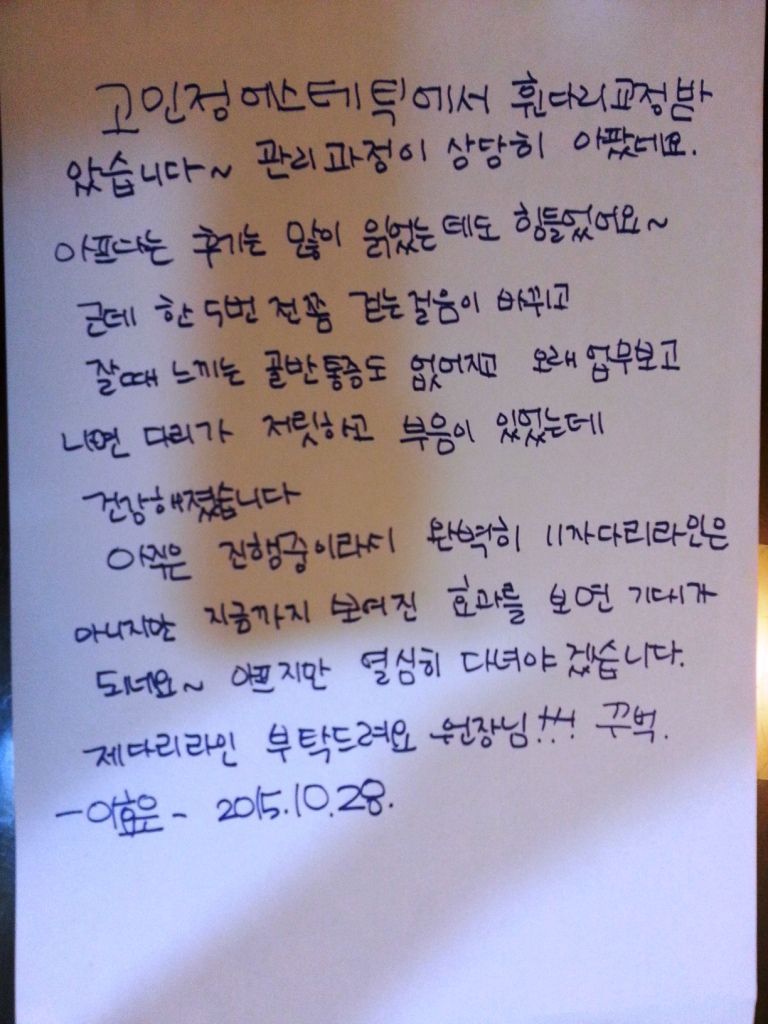 고인정에스테틱에서 휜다리교정받
았습니다~ 관리과정이 상당히 아팠데요.
아프다는 후기는 많이 읽었는데도 힘들었어요~
근데 한 5번 전쯤 걷는걸음이 바뀌고
잘때 느끼는 골반통증도 없어지고 오래 업무보고
나면 다리가 저릿하고 부음이 있었는데
건강해졌습니다
아직은 진행중이라서 완벽히 11자다리라인은
아니지만 지금까지 보여진 효과를 보면 기대가
되네요~ 아프지만 열심히 다녀야겠습니다.
제다리라인 부탁드려요 원장님!!! 꾸벅.
- 2015.10.28.